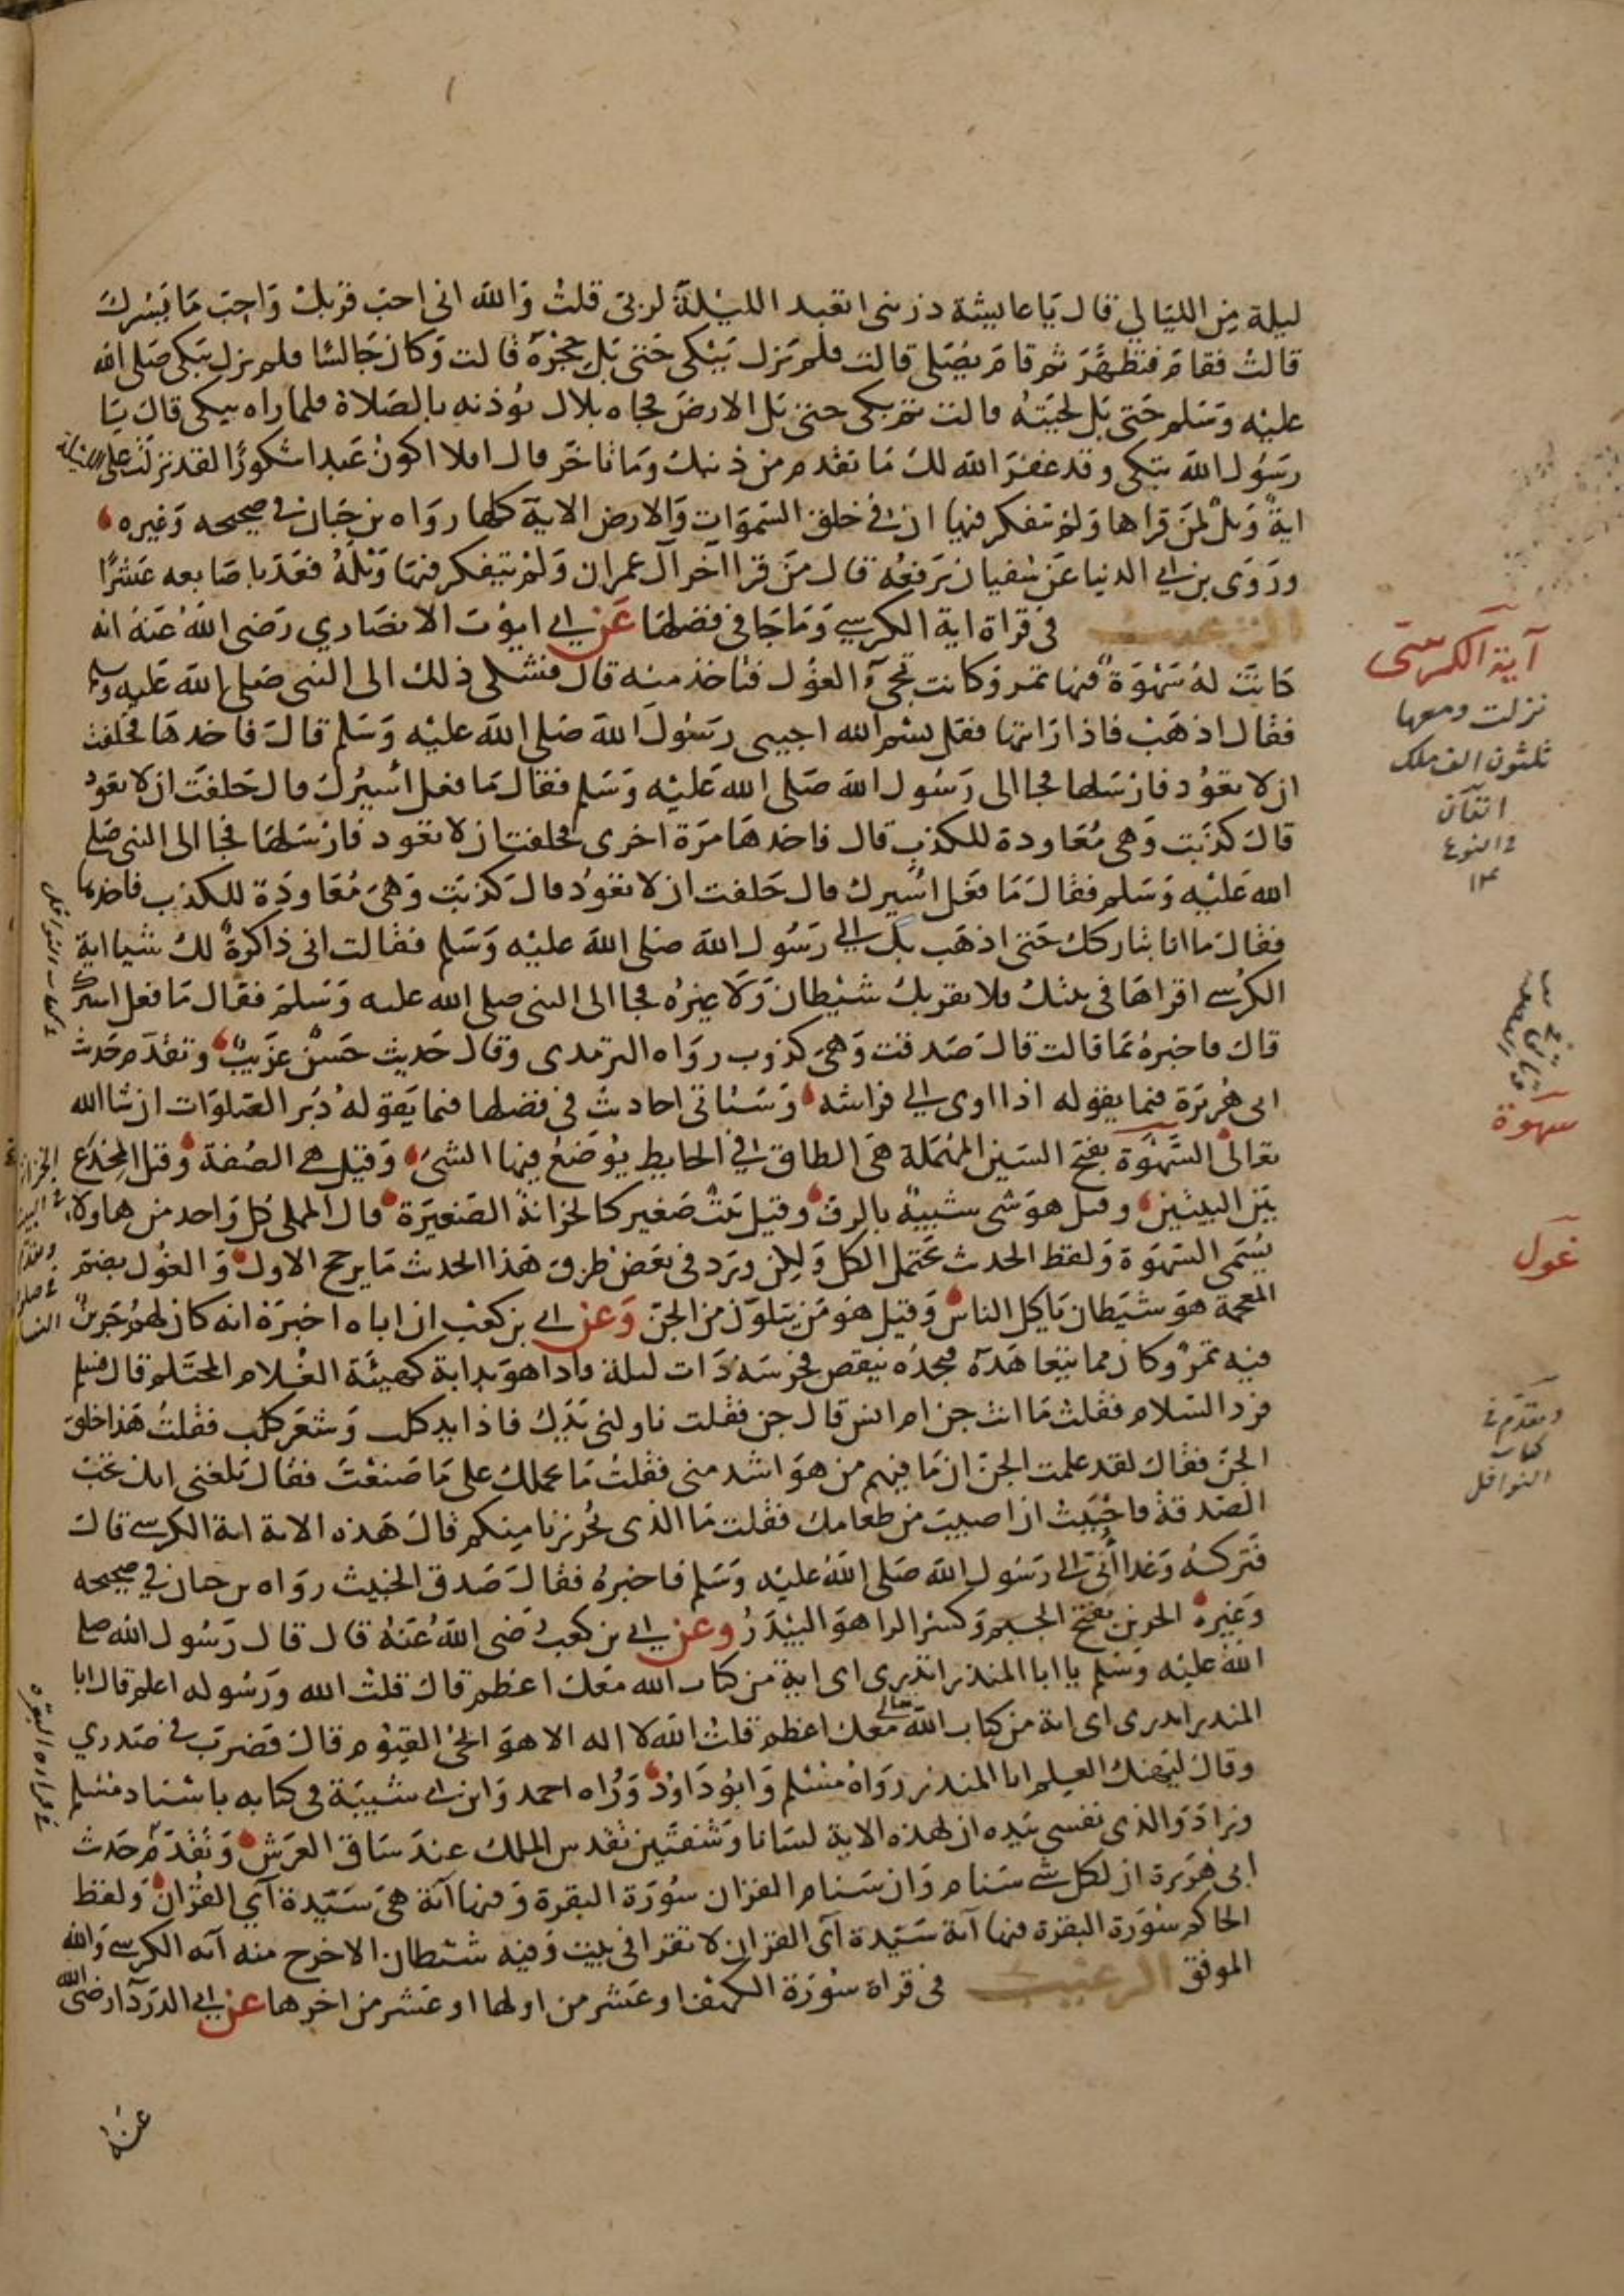 ليلة من الليالي قال يا عايشة ذريني اتعبد الليلة لربي قلت والله اني احب قربك واحب ما يسرك
قالت فقام فتطهر ثم قام يصلي قالت فلم يزل يبكي حتى بل حجره قالت وكان جالسا فلم يزل يبكي صلى الله
عليه وسلم حتى بل لحيته قالت ثم بكى حتى بل الارض فجاه بلال يوذنه بالصلاة فلما راه يبكي قال يا
رسول الله تبكي وقد غفر الله لك ما تقدم من ذنبك وما تاخر قال افلا اكون عبدا شكورا لقد نزلت علي الليلة
اية ويل لمن قراها ولم يتفكر فيها ان في خلق السموات والارض الاية كلها رواه بن حبان في صحيحه وغيره
وروى بن ابي الدنيا عن سفيان يرفعه قال من قرا اخر آل عمران ولم يتفكر فيها ويله فعد باصابعه عشرا
الترغيب في قراة اية الكرسي وما جا في فضلها عن ابي ايوب الانصاري رضي الله عنه انه
كانت له سهوة فيها تمر وكانت تجيء الغول فتاخذ منه قال فشكى ذلك الى النبي صلى الله عليه وسلم
فقال اذهب فاذا رايتها فقل بسم الله اجيبي رسول الله صلى الله عليه وسلم قال فاخذها فحلفت
ان لا تعود فارسلها فجا الى رسول الله صلى الله عليه وسلم فقال ما فعل اسيرك قال حلفت ان لا تعود
قال كذبت وهي معاودة للكذب قال فاخذها مرة اخرى فحلفت ان لا تعود فارسلها فجا الى النبي صلى
الله عليه وسلم فقال ما فعل اسيرك قال حلفت ان لا تعود قال كذبت وهي معاودة للكذب فاخذها
فقال ما انا بتاركك حتى اذهب بك الى رسول الله صلى الله عليه وسلم فقالت اني ذاكرة لك شيا اية
الكرسي اقراها في بيتك فلا يقربك شيطان ولا غيره فجا الى النبي صلى الله عليه وسلم فقال ما فعل اسيرك
قال فاخبره بما قالت قال صدقت وهي كذوب رواه الترمذي وقال حديث حسن غريب وتقدم حديث
ابي هريرة فيما يقوله اذا اوى الى فراشه وستاتي احاديث في فضلها فيما يقوله دبر الصلوات ان شا الله
تعالى السهوة بفتح السين المهملة هي الطاق في الحايط يوضع فيها الشيء وقيل هي الصفة وقيل المخدع
بين البيتين وقيل هو شي شبيه بالرف وقيل بيت صغير كالخزانة الصغيرة قال المملي كل واحد من هاولاء
يسمى السهوة ولفظ الحديث يحتمل الكل ولكن ورد في بعض طرق هذا الحديث ما يرجح الاول والغول بضم
المعجمة هو شيطان ياكل الناس وقيل هو من يتلون من الجن وعن ابي بن كعب ان اباه اخبره انه كان لهم جرين
فيه تمر وكان مما يتعاهده فيجده ينقص فحرسه ذات ليلة فاذا هو بدابة كهيئة الغلام المحتلم قال فسلم
فرد السلام فقلت ما انت جن ام انس قال جن فقلت ناولني يدك فاذا يد كلب وشعر كلب فقلت هذا خلق
الجن فقال لقد علمت الجن ان ما فيهم من هو اشد مني فقلت ما يحملك على ما صنعت فقال بلغني انك تحب
الصدقة فاحببت ان اصيب من طعامك فقلت ما الذي يحرزنا منكم قال هذه الاية اية الكرسي قال
فتركته وغدا ابي الى رسول الله صلى الله عليه وسلم فاخبره فقال صدق الخبيث رواه بن حبان في صحيحه
وغيره الجرين بفتح الجيم وكسر الرا هو البيدر وعن ابي بن كعب رضي الله عنه قال قال رسول الله صلى
الله عليه وسلم يا ابا المنذر اتدري اي اية من كتاب الله معك اعظم قال قلت الله ورسوله اعلم قال ابا
المنذر اتدري اي اية من كتاب الله تعالى معك اعظم قلت الله لا اله الا هو الحي القيوم قال فضرب في صدري
وقال ليهنك العلم ابا المنذر رواه مسلم وابو داود ورواه احمد وابن ابي شيبة في كتابه باسناد مسلم
وزاد والذي نفسي بيده ان لهذه الاية لسانا وشفتين تقدس الملك عند ساق العرش وتقدم حديث
ابي هريرة ان لكل شي سنام وان سنام القران سورة البقرة وفيها آية هي سيدة آي القران ولفظ
الحاكم سورة البقرة فيها آية سيدة آي القران لا تقرا في بيت وفيه شيطان الا خرج منه آية الكرسي والله
الموفق الترغيب في قراة سورة الكهف او عشر من اولها او عشر من اخرها عن ابي الدردآ رضي الله
عنه
آية الكرسي
نزلت ومعها
ثلثون الف ملك
اتقان
في النوع
١٤
سهوة
غول
وتقدم في
كتاب
النوافل